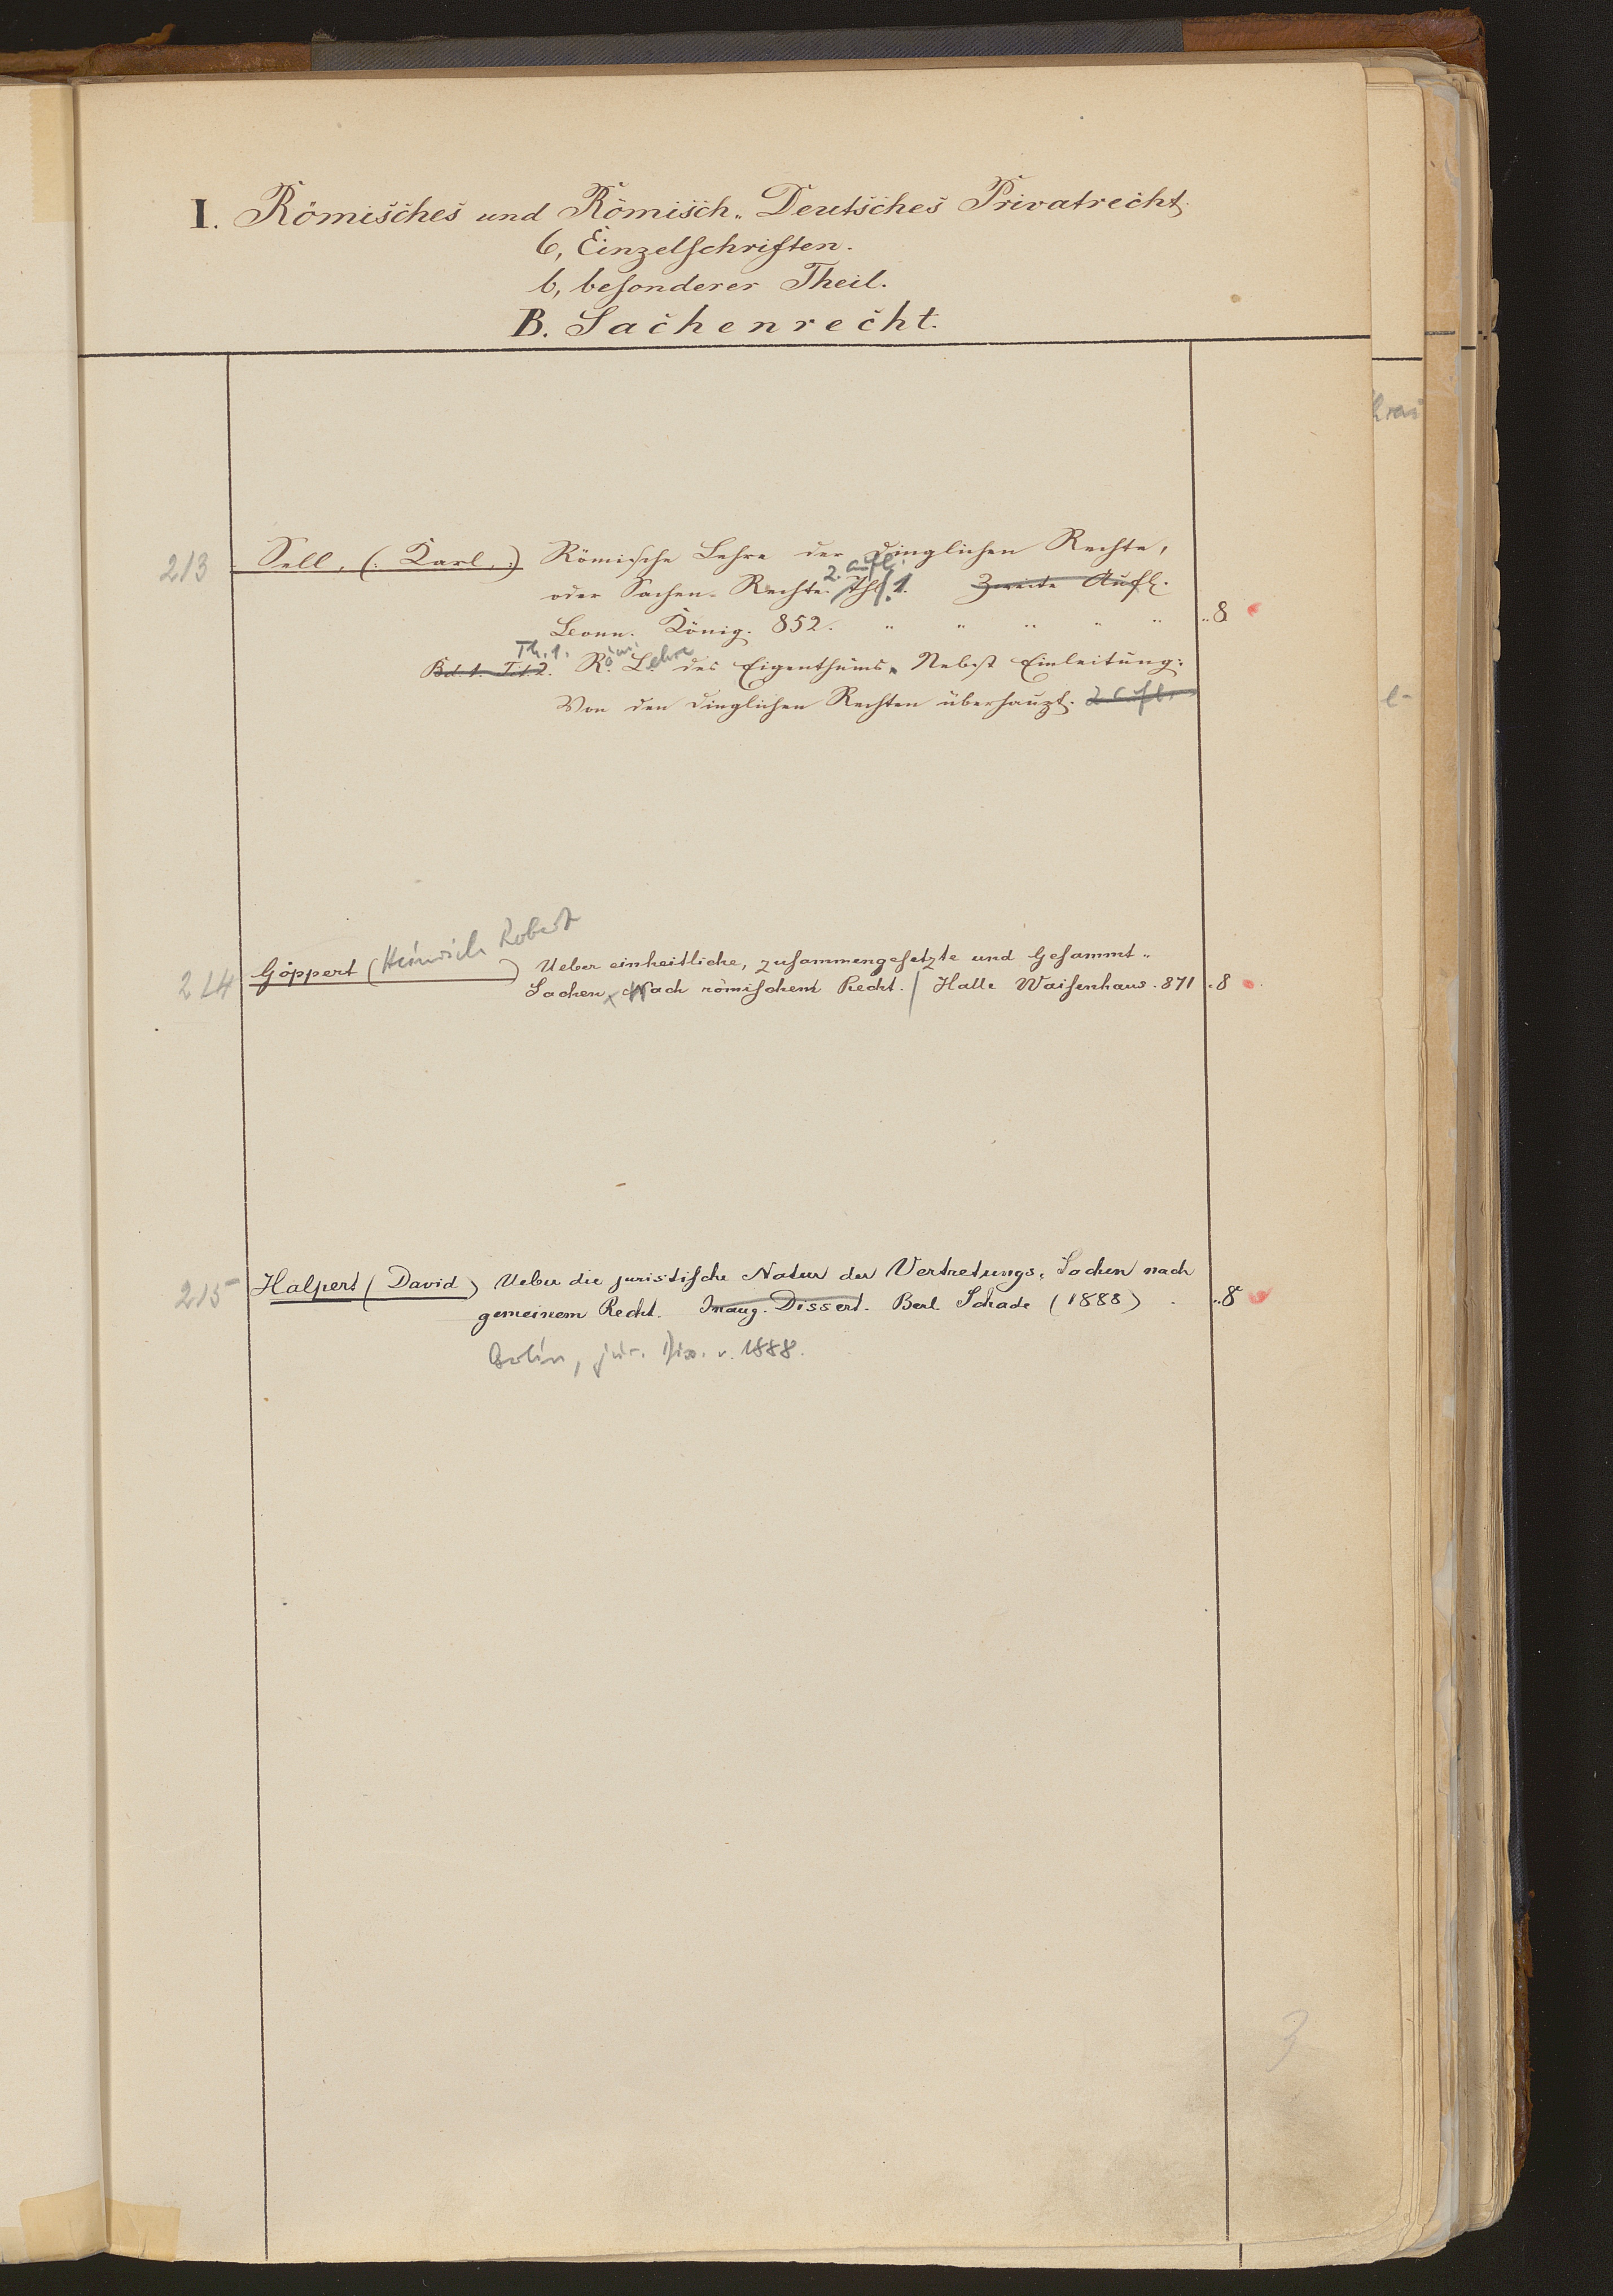 I. Römisches und Römisch-Deutsches Privatrecht.
6, Einzelschriften.
b, besonderer Theil.
B. Sachenrecht.
213 Sell, (: Karl, :) Römische Lehre der dinglichen Rechte,
2. Aufl.
oder Sachen-Rechte. Thl. 1. Zweite Aufl.
Bonn. König. 852. " " " " " .. 8
Th. 1.
Bd. 1. Tit. 2. Röm. Lehre des Eigenthums. Nebst Einleitung:
Von den dinglichen Rechten überhaupt. 2 Aufl.
214 Göppert (Heinrich Robert) Ueber einheitliche, zusammengesetzte und Gesammt-
Sachen nach römischem Recht. / Halle Waisenhaus. 871 . 8
215 Halpert (David) Ueber die juristische Natur der Vertretungs-Sachen nach
gemeinem Recht. Inaug. Dissert. Berl. Schade (1888) . .. 8
Berlin, jur. Diss. v. 1888.
3